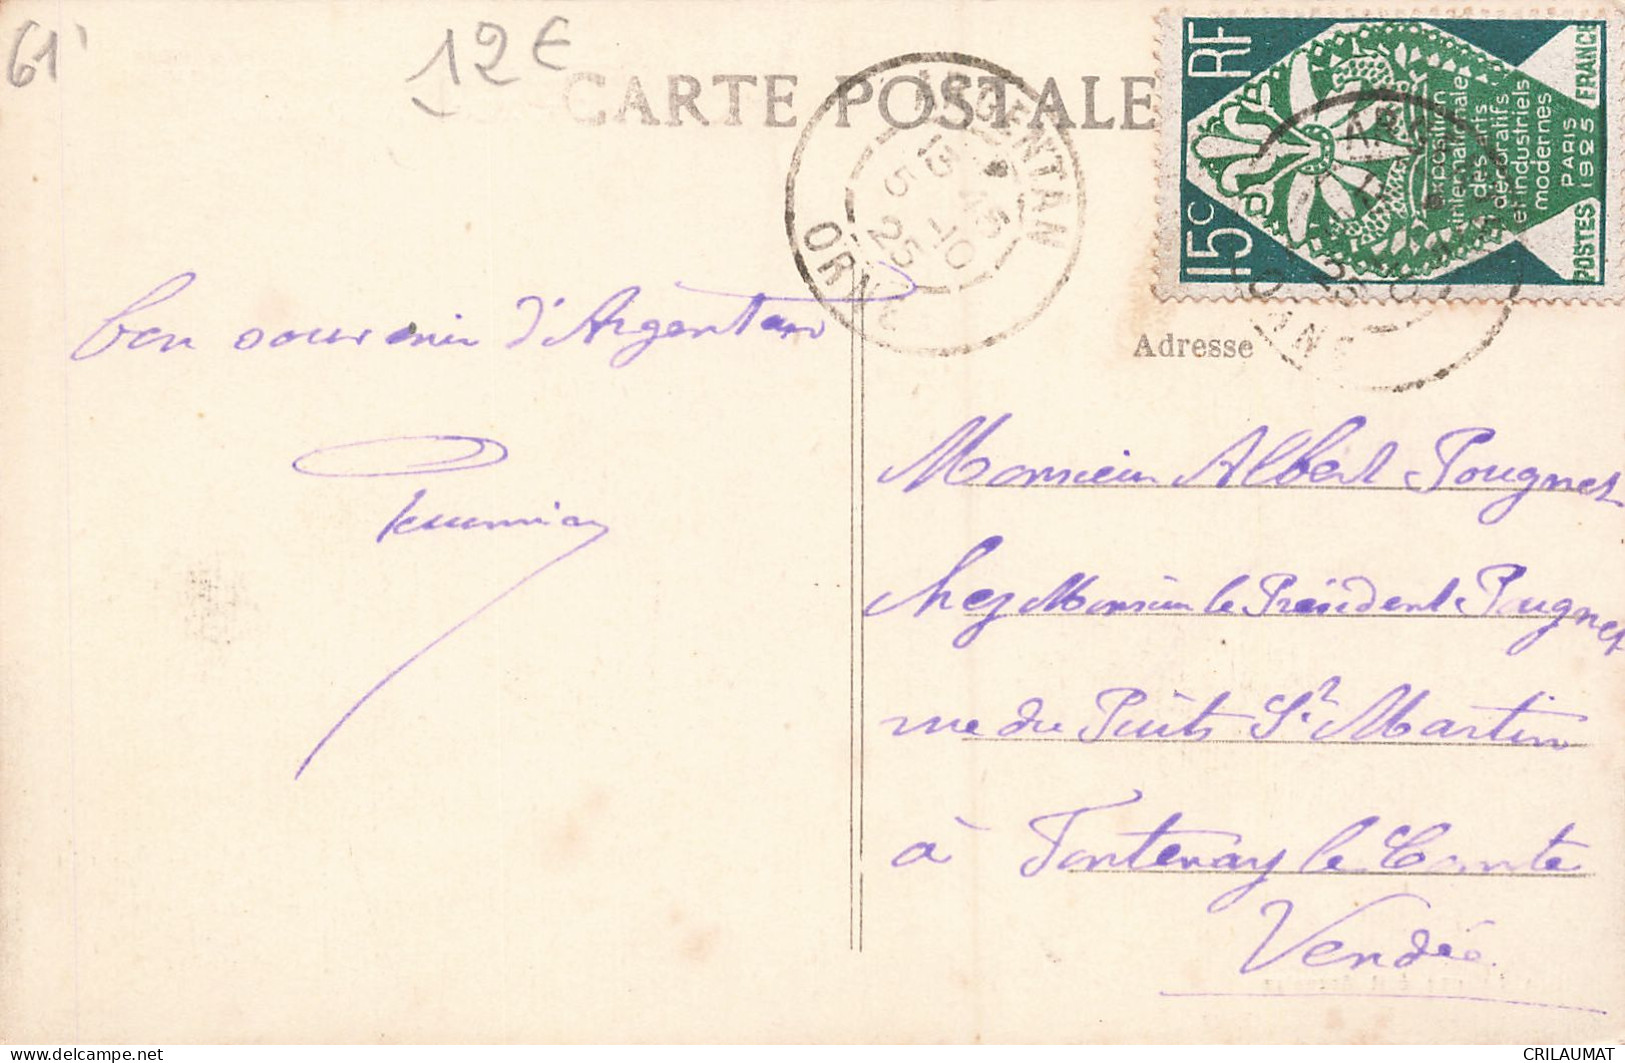 61'
12€
CARTE POSTALE
ARGENTAN
13 45
5 -10
25
ORNE
RF
15c
Exposition
internationale
des arts
décoratifs
et industriels
modernes
PARIS
1925
POSTES FRANCE
bon souvenir d'Argentan
Adresse
Monsieur Albert Pougnet
chez Monsieur le Président Pougnet
rue du Puits St Martin
à Fontenay le Comte
Vendée
www.delcampe.net
CRILAUMAT